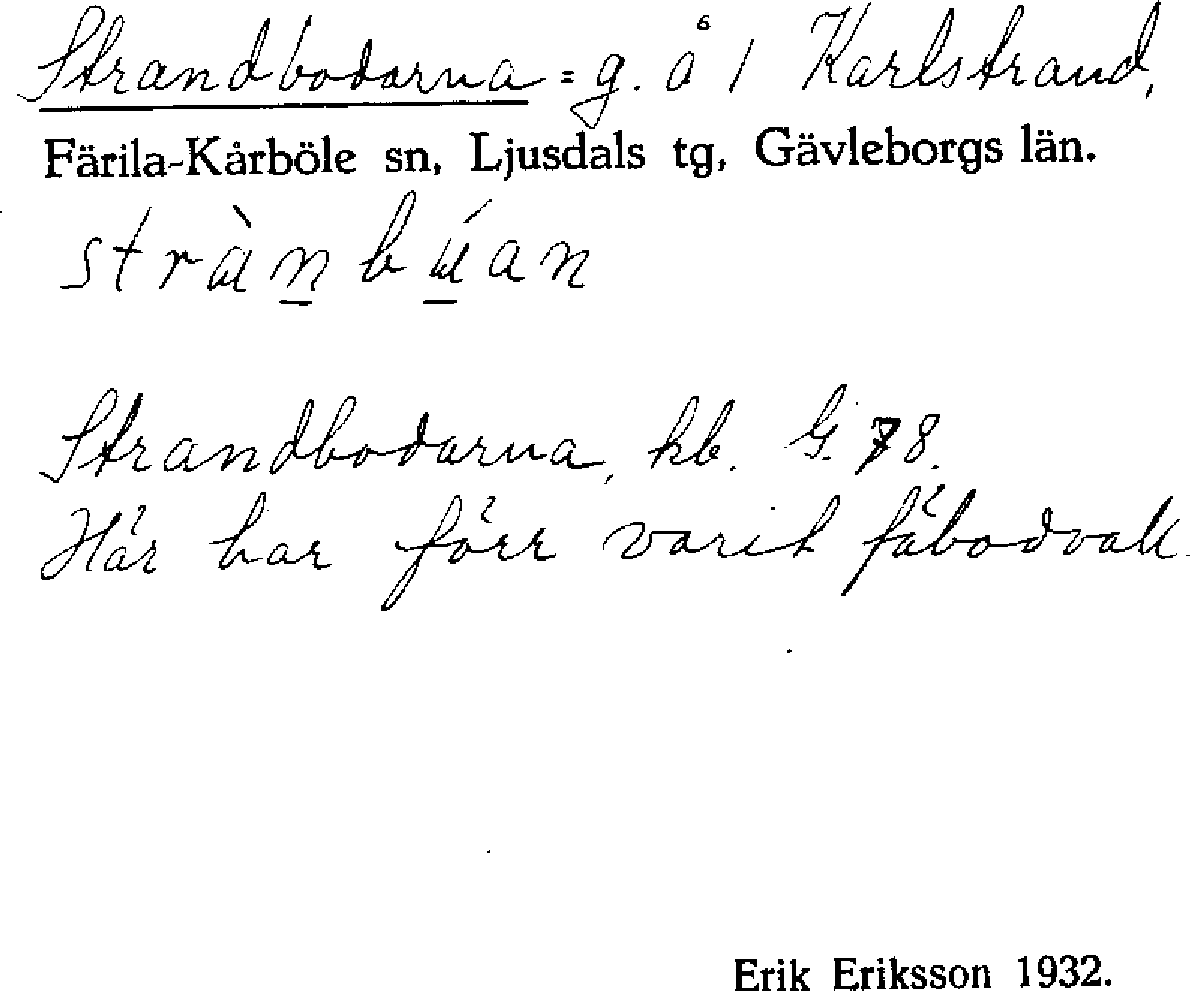 Strandbodarna = g. å 1 Karlstrand,
Färila-Kårböle sn, Ljusdals tg, Gävleborgs län.
stràn búan
Strandbodarna, kb. G. 78.
Här har förr varit fäbodvall.
Erik Eriksson 1932.